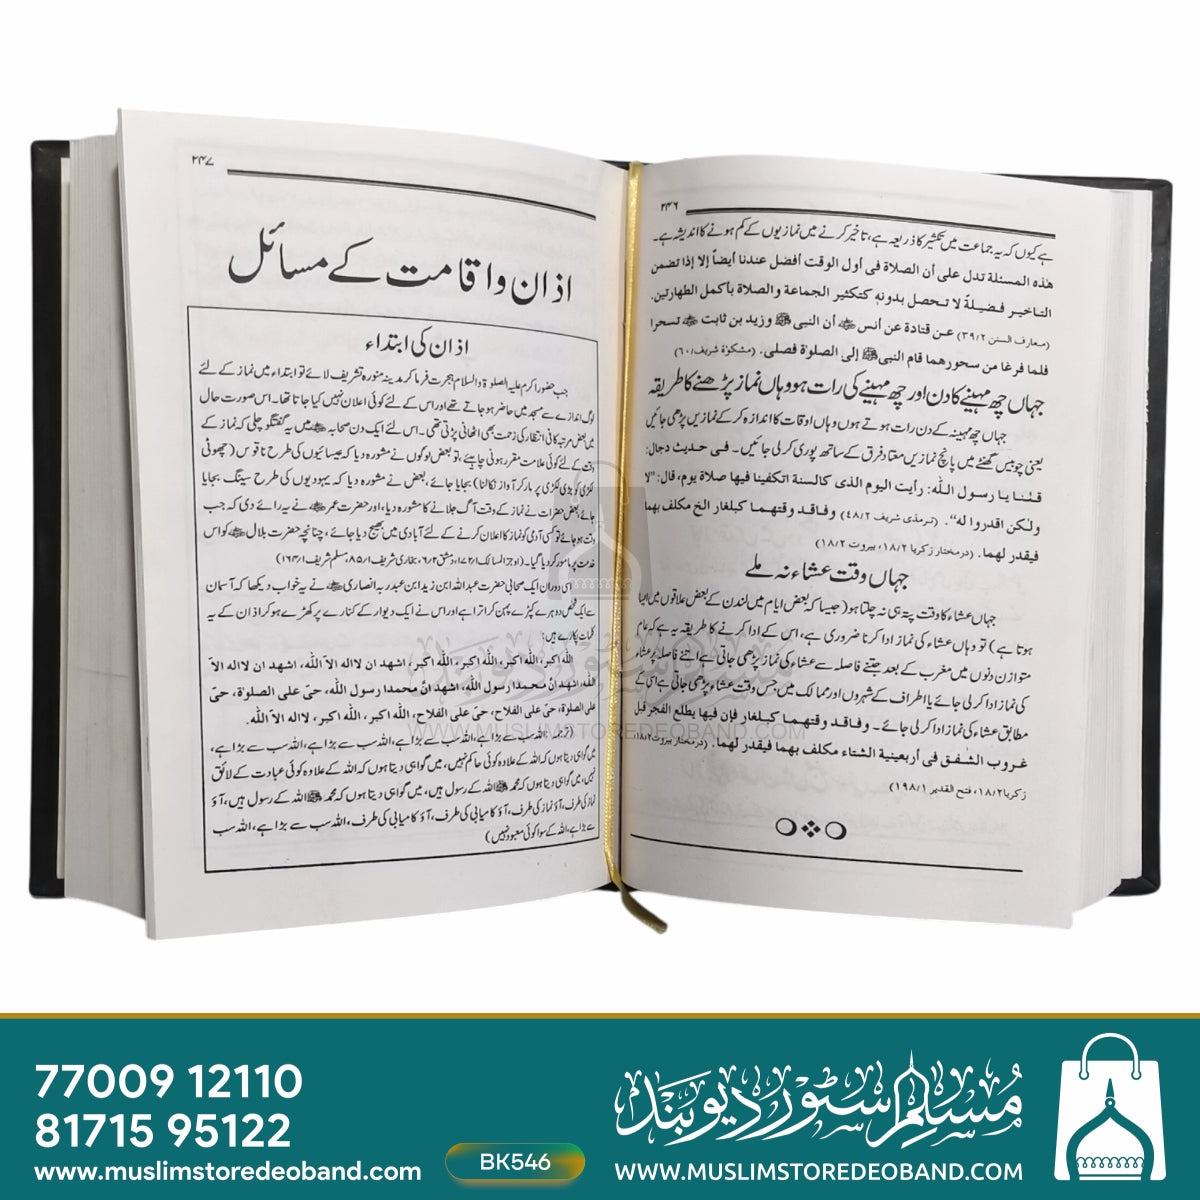 ۲۴۶
ہے کیوں کہ یہ جماعت میں تکثیر کا ذریعہ ہے، تاخیر کرنے میں نمازیوں کے کم ہونے کا اندیشہ ہے۔
هذه المسئلة تدل على أن الصلاة فى أول الوقت أفضل عندنا أيضاً إلا إذا تضمن
التاخير فضيلةً لا تحصل بدونه كتكثير الجماعة والصلاة بأكمل الطهارتين.
(معارف السنن ۳۹/۲) عن قتادة عن أنس ﷺ أن النبى ﷺ وزيد بن ثابت ﷺ تسحرا
فلما فرغا من سحورهما قام النبى ﷺ إلى الصلوٰة فصلى. (مشكوٰة شريف/۶۰)
جہاں چھ مہینے کا دن اور چھ مہینے کی رات ہو وہاں نماز پڑھنے کا طریقہ
جہاں چھ مہینہ کے دن رات ہوتے ہوں وہاں اوقات کا اندازہ کر کے نمازیں پڑھی جائیں
یعنی چوبیس گھنٹے میں پانچ نمازیں معتاد فرق کے ساتھ پوری کر لی جائیں۔ فى حديث دجال:
قلنا يا رسول الله: رأيت اليوم الذى كالسنة اتكفينا فيها صلاة يوم، قال: "لا
ولكن اقدروا له". (ترمذى شريف ۴۸/۲) وفاقد وقتهما كبلغار الخ مكلف بهما
فيقدر لهما. (درمختار زكريا ۱۸/۲، بيروت ۱۸/۲)
جہاں وقت عشاء نہ ملے
جہاں عشاء کا وقت پتہ ہی نہ چلتا ہو (جیسا کہ بعض ایام میں لندن کے بعض علاقوں میں ایسا
ہوتا ہے) تو وہاں عشاء کی نماز ادا کرنا ضروری ہے، اس کے ادا کرنے کا طریقہ یہ ہے کہ عام
متوازن دنوں میں مغرب کے بعد جتنے فاصلہ سے عشاء کی نماز پڑھی جاتی ہے اتنے فاصلہ پر عشاء
کی نماز ادا کر لی جائے یا اطراف کے شہروں اور ممالک میں جس وقت عشاء پڑھی جاتی ہے اسی کے
مطابق عشاء کی نماز ادا کر لی جائے۔ وفاقد وقتهما كبلغار فإن فيها يطلع الفجر قبل
غروب الشفق فى أربعينية الشتاء مكلف بهما فيقدر لهما. (درمختار بيروت ۱۸/۲،
زكريا ۱۸/۲، فتح القدير ۱۹۸/۱)
۲۴۷
اذان واقامت کے مسائل
اذان کی ابتداء
جب حضور اکرم علیہ الصلوٰۃ والسلام ہجرت فرما کر مدینہ منورہ تشریف لائے تو ابتداء میں نماز کے لئے
لوگ اندازے سے مسجد میں حاضر ہو جاتے تھے اور اس کے لئے کوئی اعلان نہیں کیا جاتا تھا۔ اس صورت حال
میں بعض مرتبہ کافی انتظار کی زحمت بھی اٹھانی پڑتی تھی۔ اس لئے ایک دن صحابہ ﷺ میں یہ گفتگو چلی کہ نماز کے
وقت کے لئے کوئی علامت مقرر ہونی چاہئے، تو بعض لوگوں نے مشورہ دیا کہ عیسائیوں کی طرح ناقوس (چھوٹی
لکڑی کو بڑی لکڑی پر مار کر آواز نکالنا) بجایا جائے، بعض نے مشورہ دیا کہ یہودیوں کی طرح سینگ بجایا
جائے، بعض حضرات نے نماز کے وقت آگ جلانے کا مشورہ دیا، اور حضرت عمر ﷺ نے یہ رائے دی کہ جب
وقت ہو جائے تو کسی آدمی کو نماز کا اعلان کرنے کے لئے آبادی میں بھیج دیا جائے، چنانچہ حضرت بلال ﷺ کو اس
خدمت پر مامور کر دیا گیا۔ (اوجز المسالک ۷۲/۱ دمشق ۶/۲، بخاری شریف ۸۵/۱، مسلم شریف ۱۶۴/۱)
اسی دوران ایک صحابی حضرت عبداللہ ابن زید ابن عبدربہ انصاری ﷺ نے یہ خواب دیکھا کہ آسمان
سے ایک شخص دو ہرے کپڑے پہن کر اترا ہے اور اس نے ایک دیوار کے کنارے پر کھڑے ہو کر اذان کے یہ
کلمات پکارے ہیں:
الله اكبر، الله اكبر، الله اكبر، الله اكبر، اشهد ان لا اله الا الله، اشهد ان لا اله الا
الله، اشهد انّ محمدا رسول الله، اشهد انّ محمدا رسول الله، حيّ على الصلوٰة، حيّ
على الصلوٰة، حيّ على الفلاح، حيّ على الفلاح، الله اكبر، الله اكبر، لا اله الا الله.
(ترجمہ: اللہ سب سے بڑا ہے، اللہ سب سے بڑا ہے، اللہ سب سے بڑا ہے، اللہ سب سے بڑا ہے،
میں گواہی دیتا ہوں کہ اللہ کے علاوہ کوئی حاکم نہیں، میں گواہی دیتا ہوں کہ اللہ کے علاوہ کوئی عبادت کے لائق
نہیں، میں گواہی دیتا ہوں کہ محمد ﷺ اللہ کے رسول ہیں، میں گواہی دیتا ہوں کہ محمد ﷺ اللہ کے رسول ہیں، آؤ
نماز کی طرف، آؤ نماز کی طرف، آؤ کامیابی کی طرف، آؤ کامیابی کی طرف، اللہ سب سے بڑا ہے، اللہ سب
سے بڑا ہے، اللہ کے سوا کوئی معبود نہیں)
مسلم سٹور دیوبند
WWW.MUSLIMSTOREDEOBAND.COM
77009 12110
81715 95122
www.muslimstoredeoband.com
BK546
مسلم سٹور دیوبند
WWW.MUSLIMSTOREDEOBAND.COM